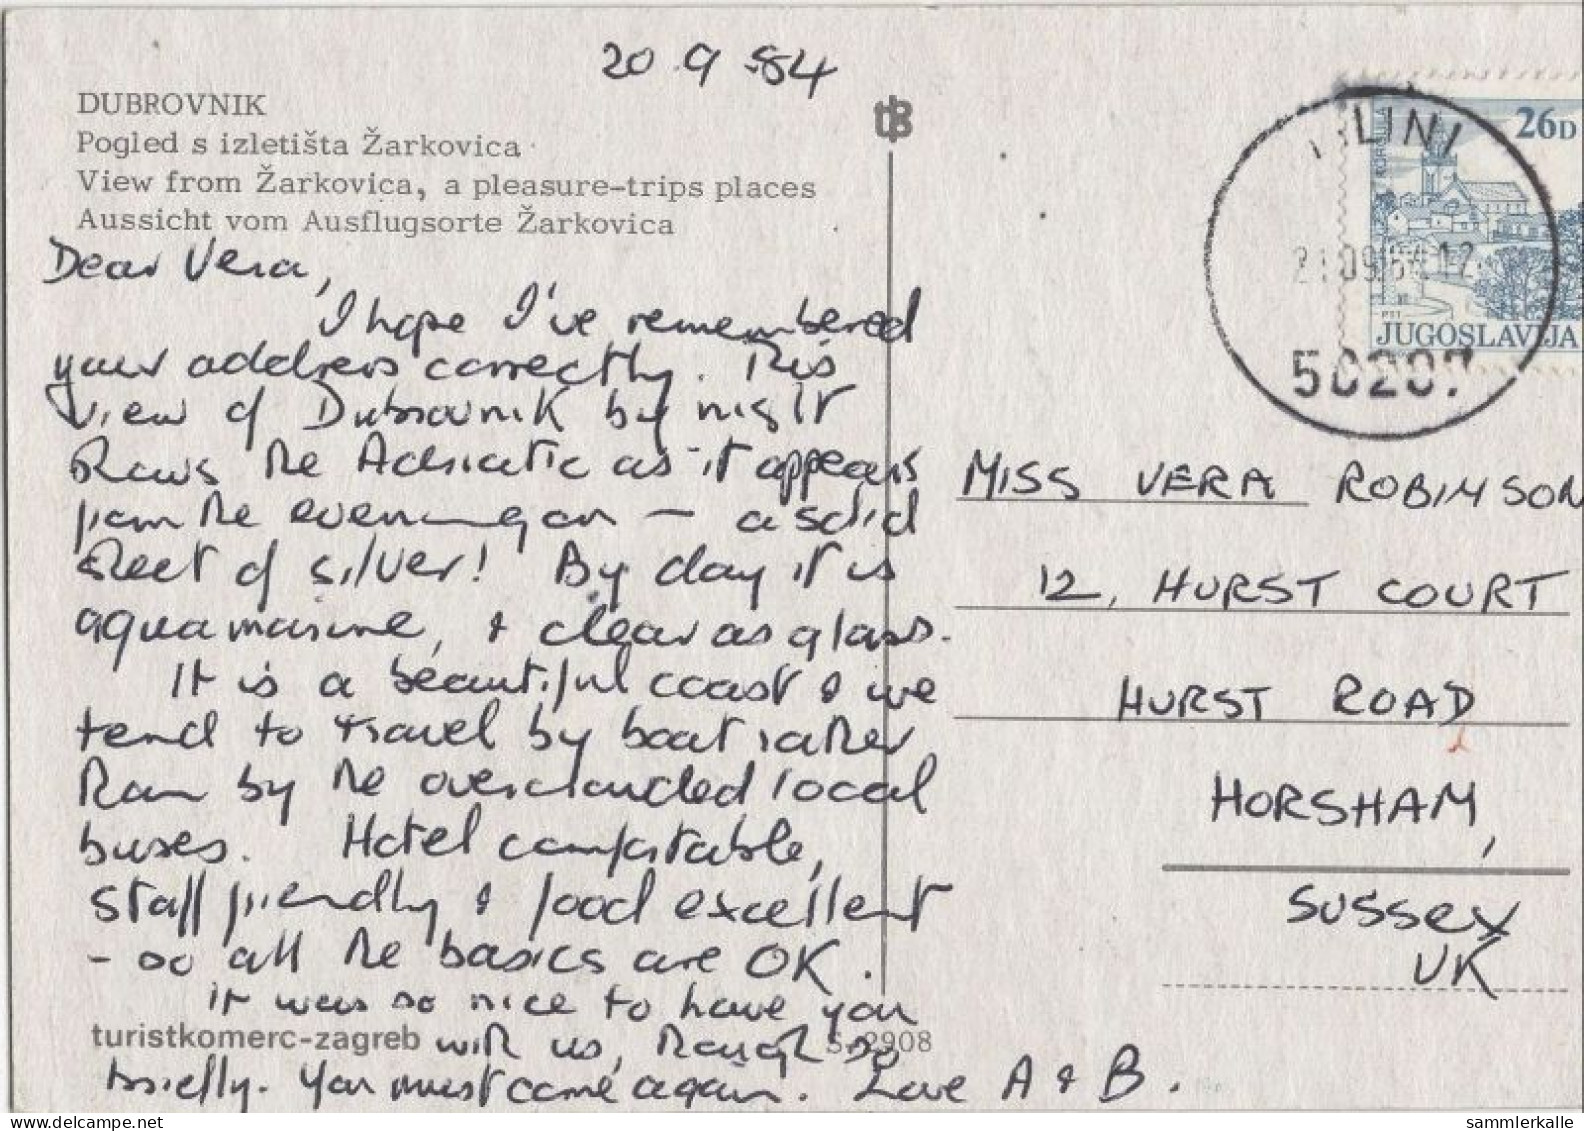 20.9.84
DUBROVNIK
Pogled s izletišta Žarkovica
View from Žarkovica, a pleasure-trips places
Aussicht vom Ausflugsorte Žarkovica
Dear Vera,
I hope I've remembered
your address correctly. This
view of Dubrovnik by night
shows the Adriatic as it appears
from the evening on – a solid
sheet of silver! By day it is
aquamarine, & clear as glass.
It is a beautiful coast & we
tend to travel by boat rather
than by the overcrowded local
buses. Hotel comfortable,
staff friendly & food excellent
- so all the basics are OK.
It was so nice to have you
with us, though so
briefly. You must come again. Love A & B.
turistkomerc-zagreb
2908
tB
MLINI
21.09.84.12
50207
KORČULA
26D
PTT
JUGOSLAVIJA
MISS VERA ROBINSON
12, HURST COURT
HURST ROAD
HORSHAM,
SUSSEX
UK
www.delcampe.net
sammlerkalle